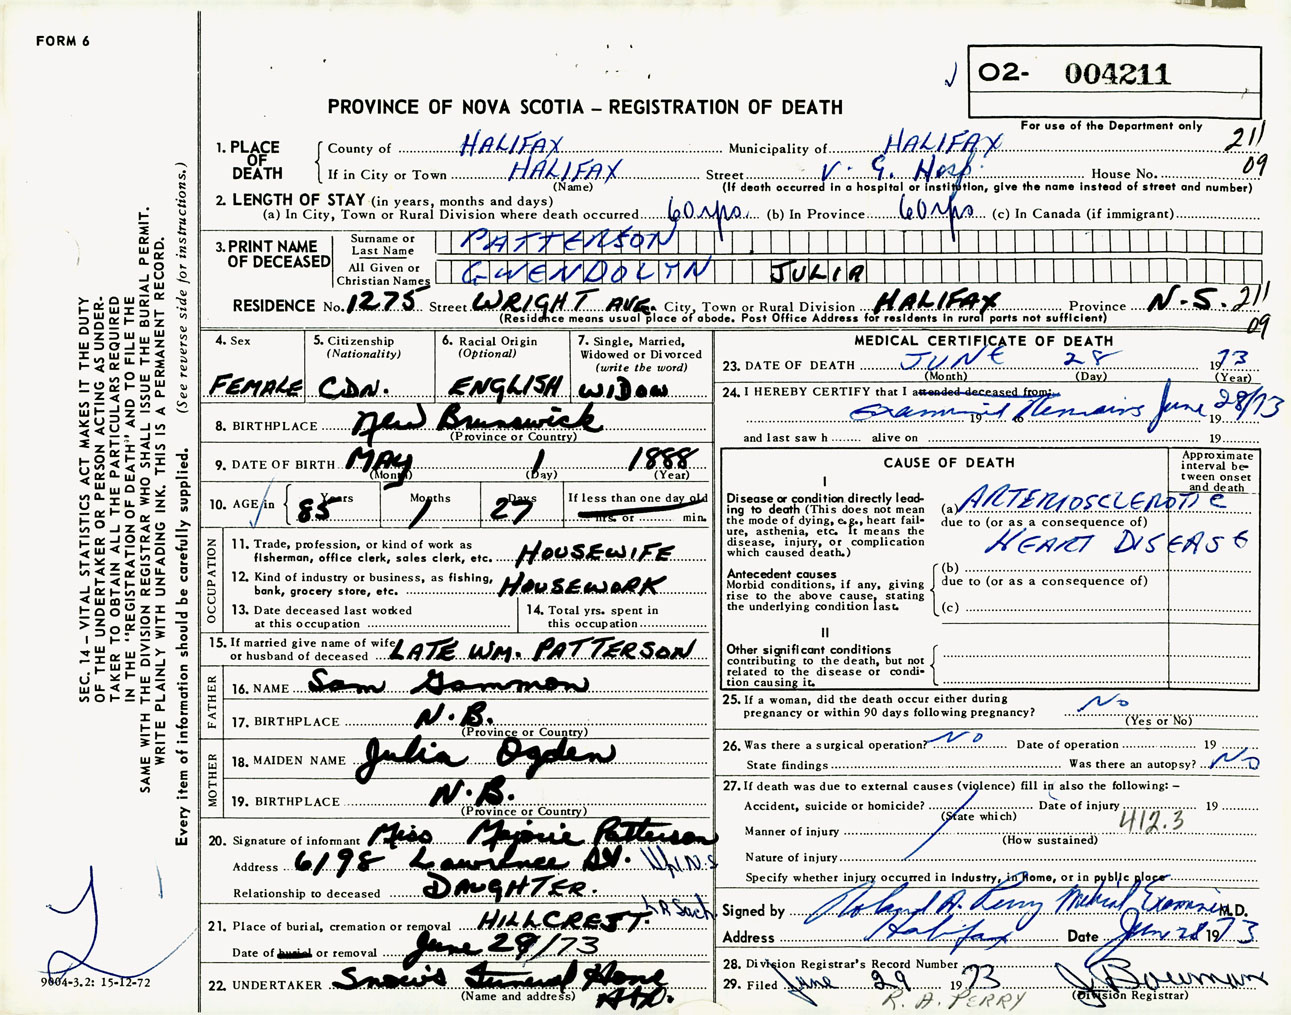 FORM 6
O2- 004211
PROVINCE OF NOVA SCOTIA – REGISTRATION OF DEATH
For use of the Department only
211
09
1. PLACE OF DEATH
County of HALIFAX Municipality of HALIFAX
If in City or Town HALIFAX Street V. G. Hosp. House No.
(Name) (If death occurred in a hospital or institution, give the name instead of street and number)
2. LENGTH OF STAY (in years, months and days)
(a) In City, Town or Rural Division where death occurred 60 yrs. (b) In Province 60 yrs (c) In Canada (if immigrant)
3. PRINT NAME OF DECEASED
Surname or Last Name PATTERSON
All Given or Christian Names GWENDOLYN JULIA
RESIDENCE No. 1275 Street WRIGHT AVE. City, Town or Rural Division HALIFAX Province N.S. 211
(Residence means usual place of abode. Post Office Address for residents in rural parts not sufficient) 09
4. Sex FEMALE
5. Citizenship (Nationality) CDN.
6. Racial Origin (Optional) ENGLISH
7. Single, Married, Widowed or Divorced (write the word) WIDOW
8. BIRTHPLACE New Brunswick
(Province or Country)
9. DATE OF BIRTH MAY 1 1888
(Month) (Day) (Year)
10. AGE in 85 Years 1 Months 27 Days If less than one day old
hrs. or min.
OCCUPATION
11. Trade, profession, or kind of work as fisherman, office clerk, sales clerk, etc. HOUSEWIFE
12. Kind of industry or business, as fishing, bank, grocery store, etc. HOUSEWORK
13. Date deceased last worked at this occupation
14. Total yrs. spent in this occupation
15. If married give name of wife or husband of deceased LATE WM. PATTERSON
FATHER
16. NAME Sam Gammon
17. BIRTHPLACE N.B.
(Province or Country)
MOTHER
18. MAIDEN NAME Julia Ogden
19. BIRTHPLACE N.B.
(Province or Country)
20. Signature of informant Miss Marjorie Patterson
Address 6198 Lawrence St.
Relationship to deceased DAUGHTER.
21. Place of burial, cremation or removal HILLCREST.
Date of burial or removal June 29/73
22. UNDERTAKER Snow's Funeral Home
(Name and address) Hfx.
MEDICAL CERTIFICATE OF DEATH
23. DATE OF DEATH JUNE 28 1973
(Month) (Day) (Year)
24. I HEREBY CERTIFY that I attended deceased from:
Examined Remains June 28/73
19 to 19
and last saw h alive on 19
CAUSE OF DEATH
Approximate interval between onset and death
I
Disease or condition directly leading to death (This does not mean the mode of dying, e.g., heart failure, asthenia, etc. It means the disease, injury, or complication which caused death.)
(a) ARTERIOSCLEROTIC
due to (or as a consequence of)
HEART DISEASE
Antecedent causes
Morbid conditions, if any, giving rise to the above cause, stating the underlying condition last.
(b)
due to (or as a consequence of)
(c)
II
Other significant conditions contributing to the death, but not related to the disease or condition causing it.
25. If a woman, did the death occur either during pregnancy or within 90 days following pregnancy? No
(Yes or No)
26. Was there a surgical operation? NO Date of operation 19
State findings Was there an autopsy? NO
27. If death was due to external causes (violence) fill in also the following: –
Accident, suicide or homicide? Date of injury 19
(State which) 412.3
Manner of injury
(How sustained)
Nature of injury
Specify whether injury occurred in Industry, in Home, or in public place
Signed by Roland A. Perry Medical Examiner M.D.
Address Halifax Date June 28 1973
28. Division Registrar's Record Number
29. Filed June 29 1973 J Bowman
R. A. PERRY (Division Registrar)
SEC. 14 – VITAL STATISTICS ACT MAKES IT THE DUTY
OF THE UNDERTAKER OR PERSON ACTING AS UNDER-
TAKER TO OBTAIN ALL THE PARTICULARS REQUIRED
IN THE "REGISTRATION OF DEATH" AND TO FILE THE
SAME WITH THE DIVISION REGISTRAR WHO SHALL ISSUE THE BURIAL PERMIT.
WRITE PLAINLY WITH UNFADING INK. THIS IS A PERMANENT RECORD.
Every item of information should be carefully supplied. (See reverse side for instructions.)
9004-3.2: 15-12-72